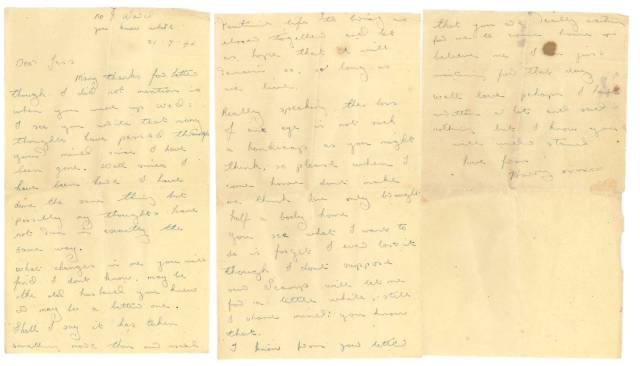 No 3 Ward
you know where
Dear Jess
Many thanks for letter
though I did not mention it
when you
I see you write that many
thoughts have passed through
your mind since I have
been gone. Well since I
have been here I have
done the same thing but
possibly my thoughts have
not in exactly the
same way.
What changes in me you will
find I don't know, may be
the old husband you knew
may be a better one.
Shall I say it has taken
something more than
life to bring us
closer together and let
us hope that it will
remain so, so long as
we live.
Really speaking the loss
of one eye is not such
a handicap as you might
think, so please when I
come home don't make
me think I've only brought
half a body home
You see what I want to
do is forget I ever lost it
though I don't suppose
will let me
for a little while, still
I shan't mind; you know
that.
I know from your letter
that you are really waiting
for me to come home
believe me I am just
waiting for that day
Well love perhaps I have
written a lot and said
nothing but I know you
will understand
love from
Harry xxxxx